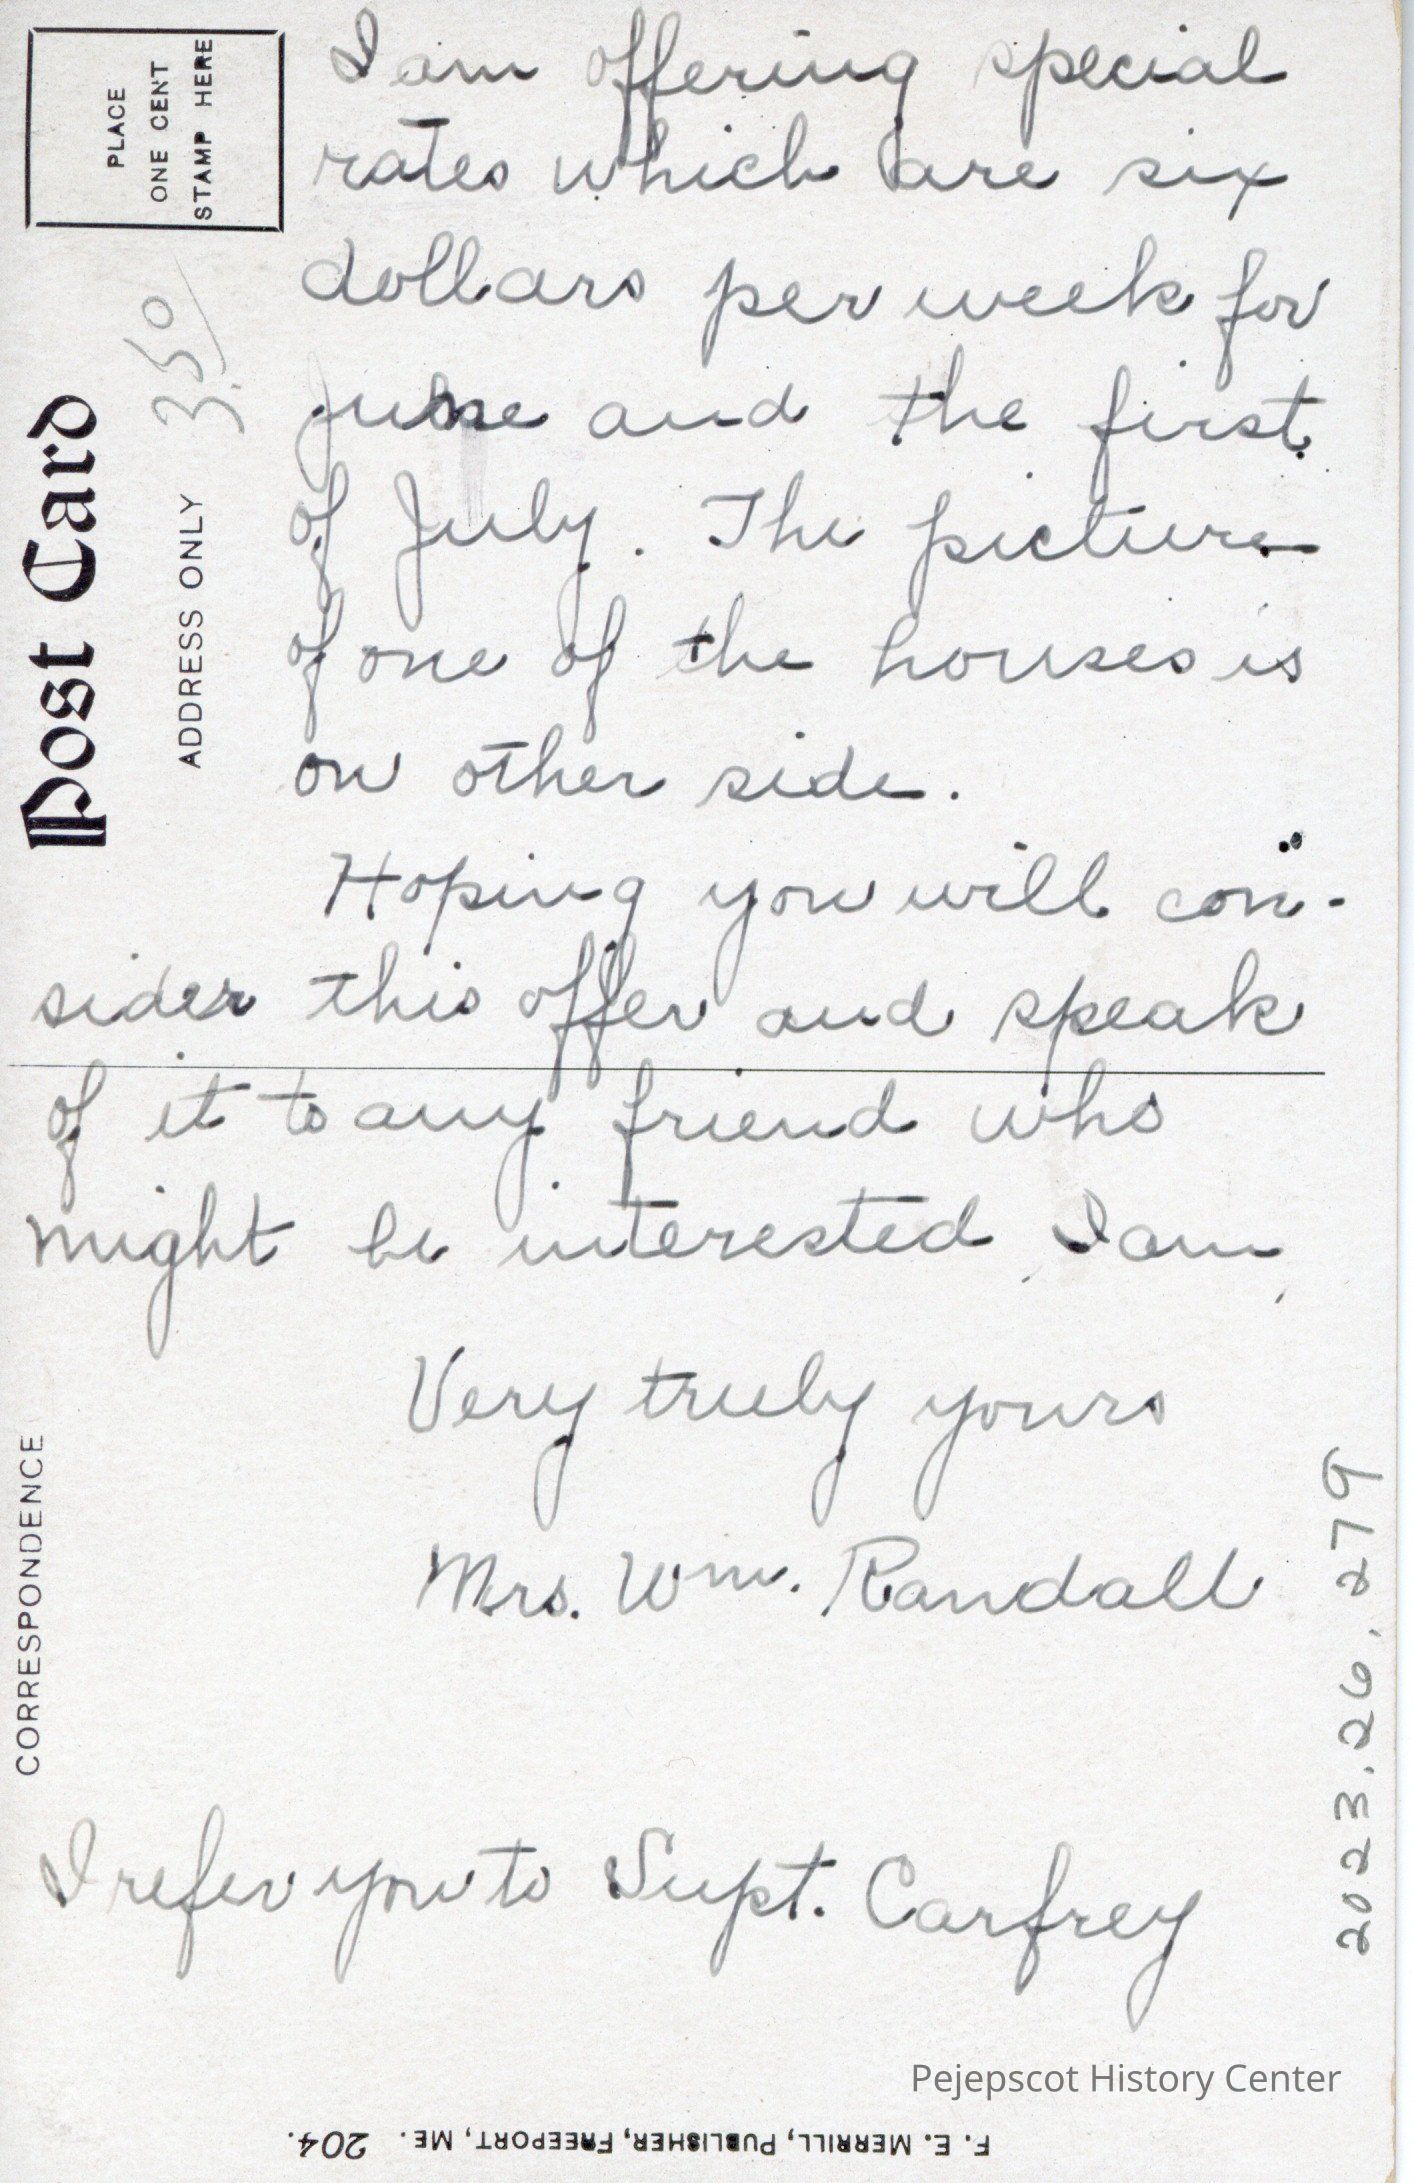 I am offering special
rates which are six
dollars per week for
June and the first
of July. The picture
of one of the houses is
on other side.
Hoping you will con-
sider this offer and speak
of it to any friend who
might be interested, I am,
Very truly yours
Mrs. Wm. Randall
I refer you to Supt. Carfrey
PLACE
ONE CENT
STAMP HERE
Post Card
ADDRESS ONLY
3.50
CORRESPONDENCE
2023.26.279
Pejepscot History Center
F. E. MERRILL, PUBLISHER, FREEPORT, ME. 204.